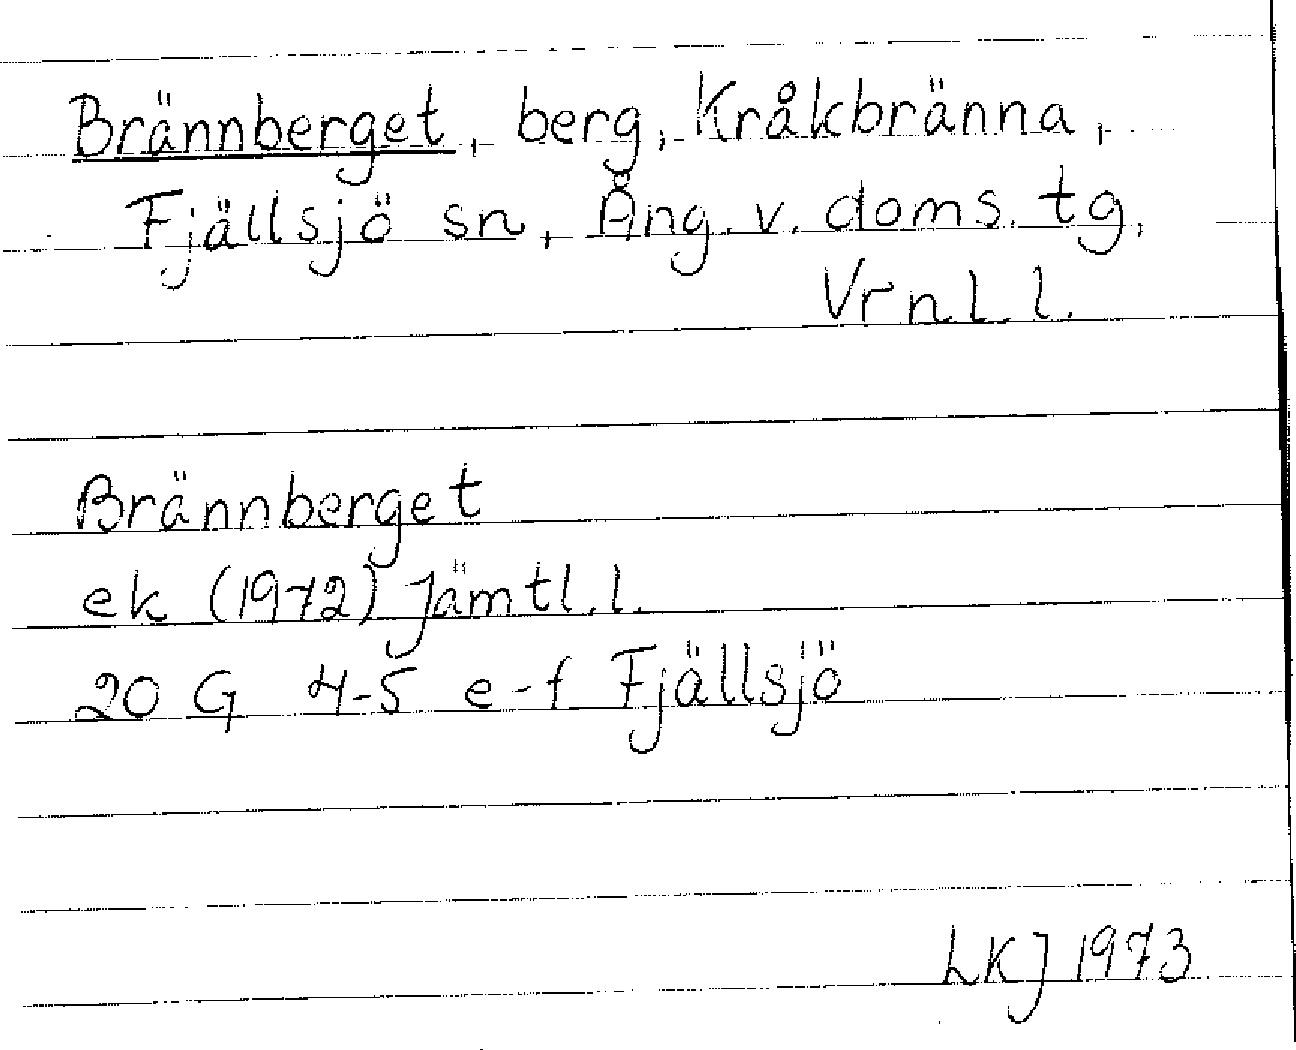 Brännberget, berg, Kråkbränna,
Fjällsjö sn, Ång. v. doms. tg,
Vrnl. l.
Brännberget
ek (1972) Jämtl. l.
20 G 4-5 e-f Fjällsjö
LKJ 1973